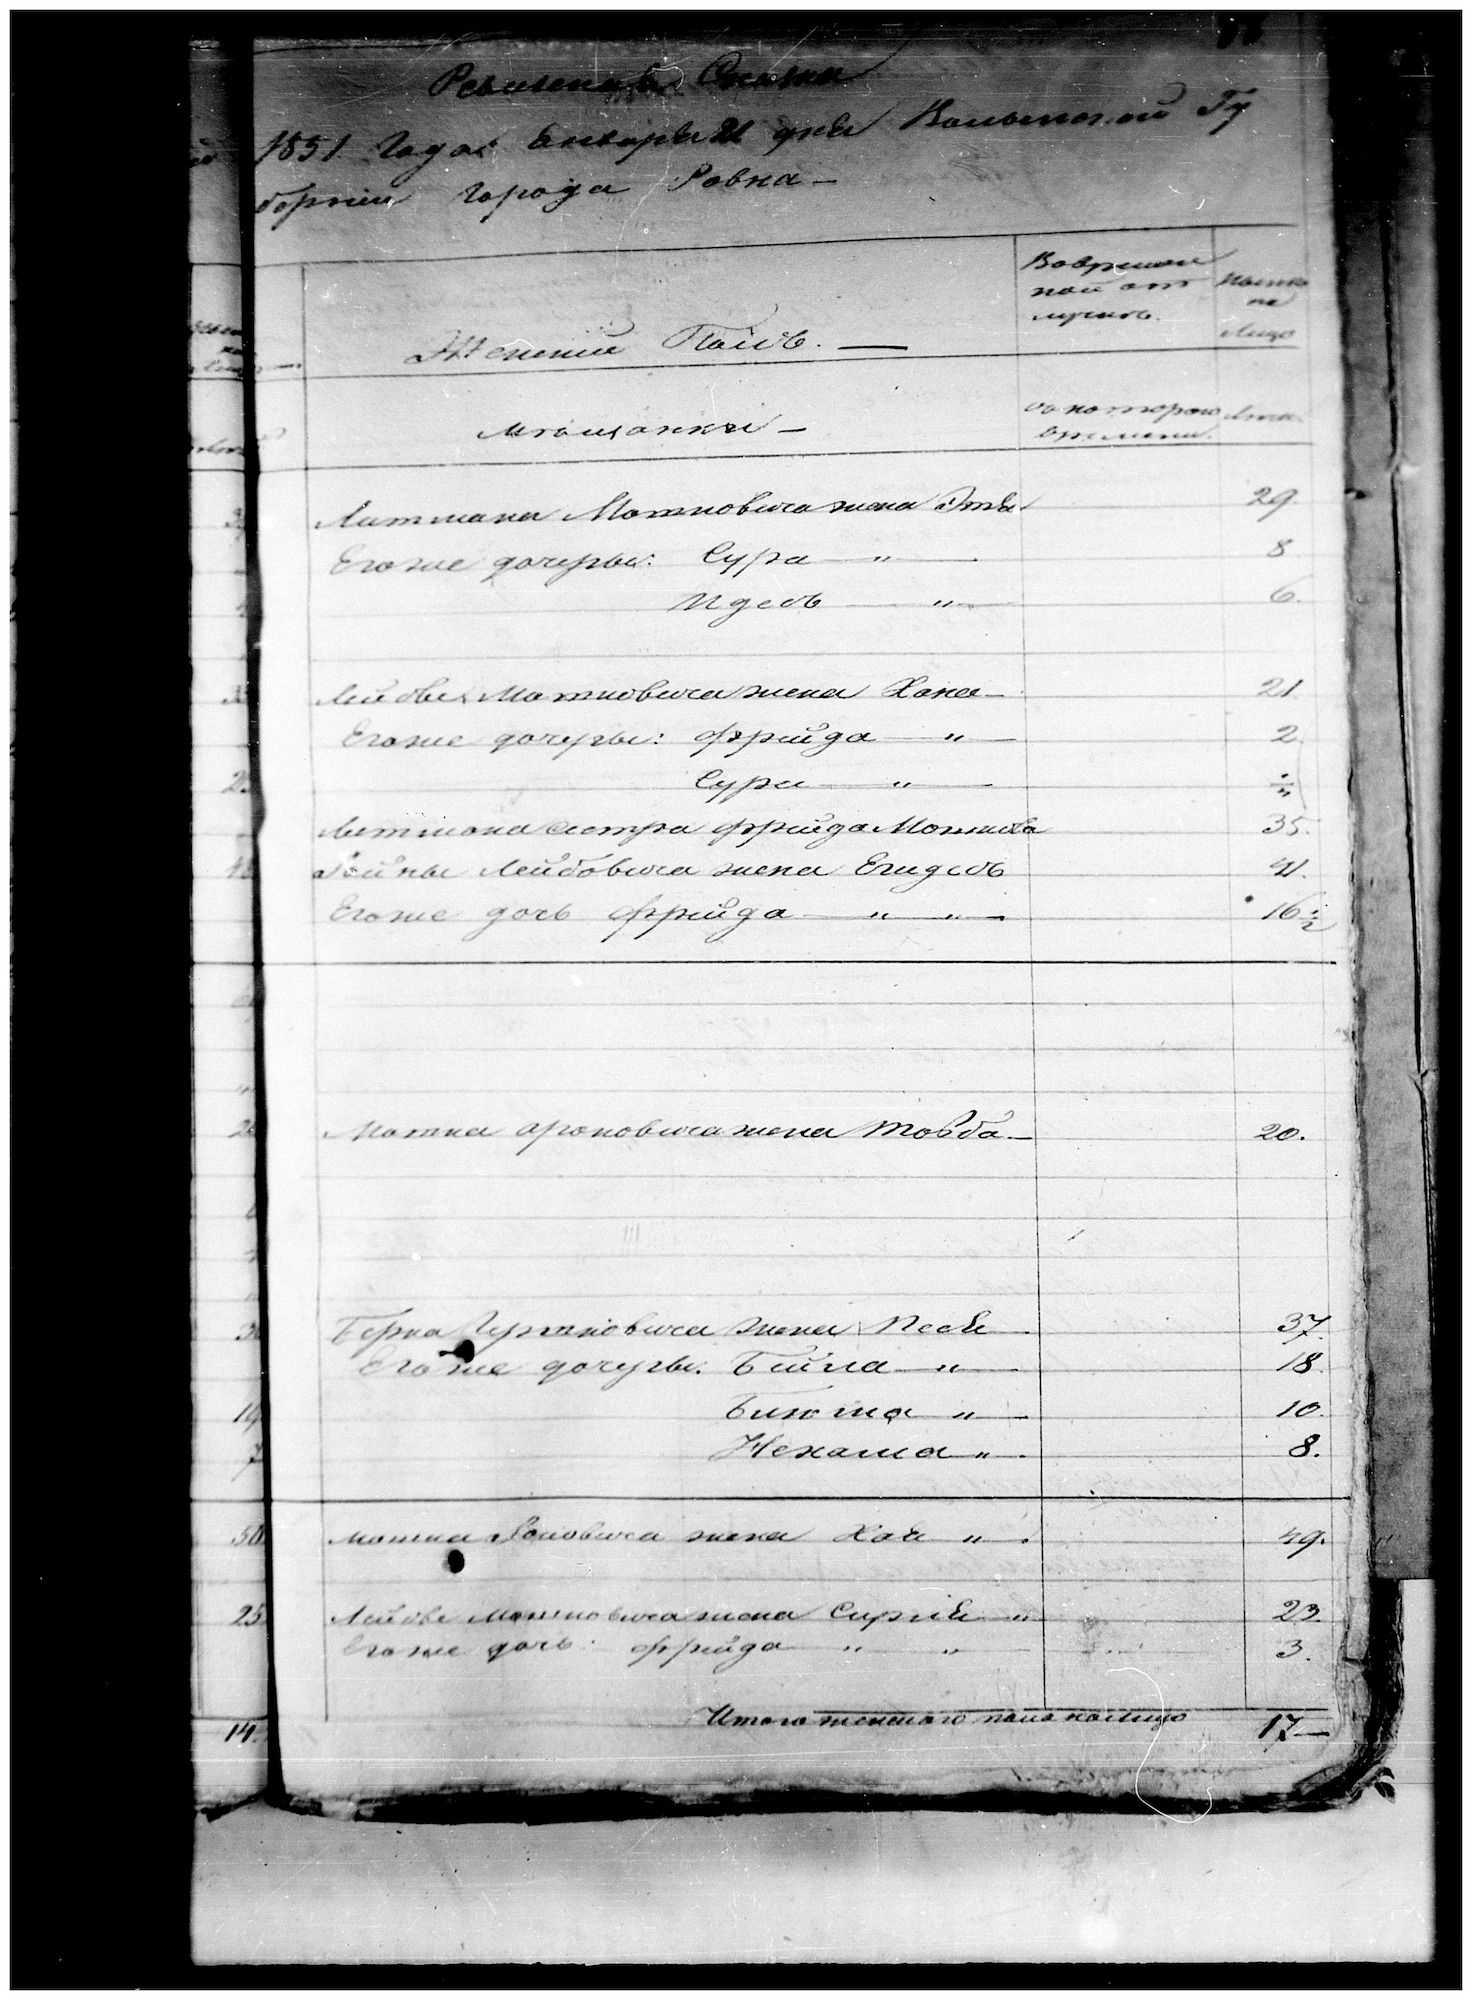 Ревизская Сказка
1851 Года Января 21 дня Волынской Гу
бернии Города Ровна —
Женский Полъ. —
Вовремен
ной от
лучкъ.
Ныне
на
Лицо
мещанки —
съ которого
времени.
лета
Литмана Мошковича жена Этя 29.
Егоже дочеры: Сура — " — 8
Идесъ — " — 6.
Лейбы Мошковича жена Хана — 21
Егоже дочеры: Фрейда — " — 2
Сура — " —
Литмана сестра Фрейда Мошкова 35.
Лейбовича жена Егидесъ 41.
Егоже дочь Фрейда — " — " — 16 1/2
Мошка Ароновича жена Товба — 20.
Берка Гершковича жена Песя 37.
Егоже дочеры: Бейла — " — 18.
" — 10.
Нехама " — 8.
Мошка жена Хая " — 49.
Лейбы Мошковича жена " 23.
Егоже дочь: Фрейда " " 3.
Итого женского пола налицо 17 —
25
14.